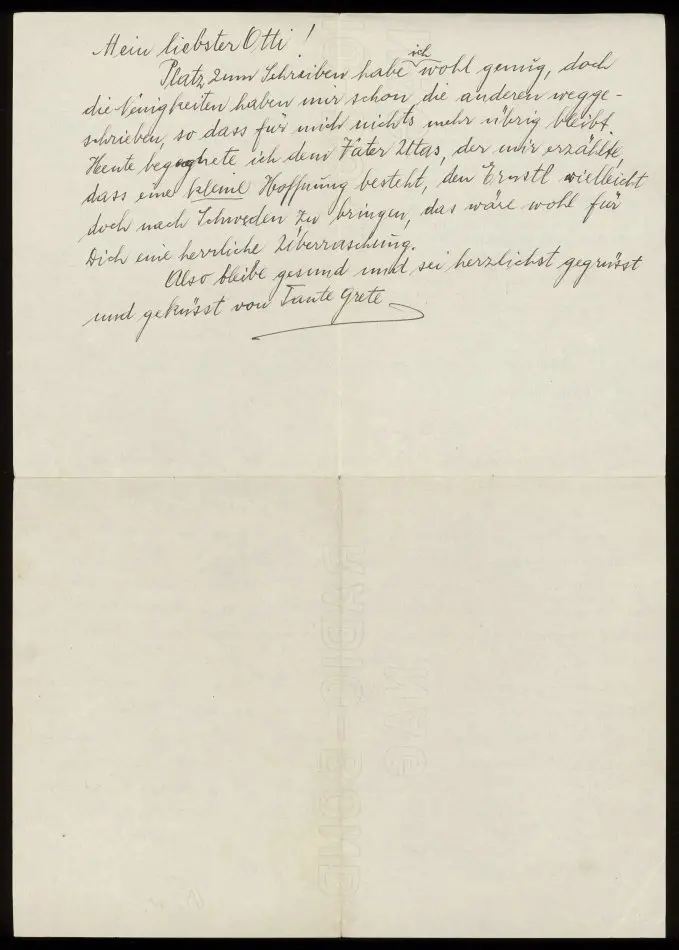 Mein liebster Otti!
Platz zum Schreiben habe ich wohl genug, doch
die Neuigkeiten haben mir schon die anderen wegge-
schrieben, so dass für mich nichts mehr übrig bleibt.
Heute begegnete ich dem Vater Uttas, der mir erzählte,
dass eine kleine Hoffnung besteht, den Ernstl vielleicht
doch nach Schweden zu bringen, das wäre wohl für
Dich eine herrliche Überraschung.
Also bleibe gesund und sei herzlichst gegrüsst
und geküsst von Tante Grete